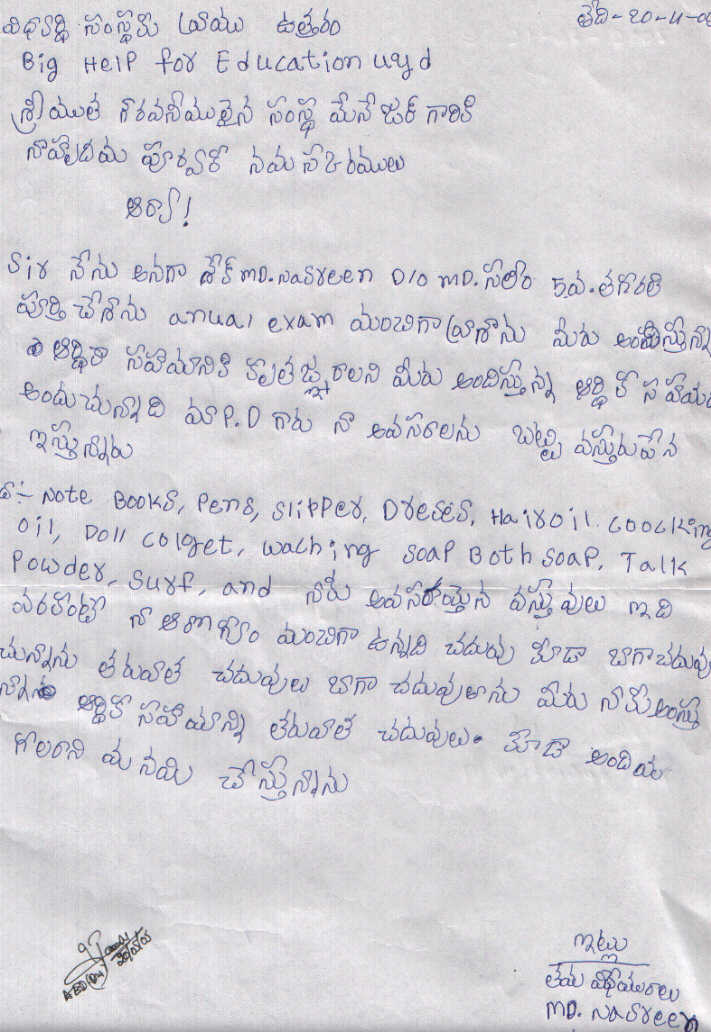 తేది-20-4-
విధ్యార్థి సంస్థకు వ్రాయు ఉత్తరం
Big Help for Education uyd
శ్రీయుత గౌరవనీయులైన సంస్థ మేనేజర్ గారికి
నాహృదయ పూర్వక నమస్కారములు
ఆర్యా!
Sir నేను అనగా షేక్ MD. Nasreen D/o MD. సలీం 5వ. తగరతి
పూర్తి చేశాను anual exam మంచిగా వ్రాశాను మీరు అందిస్తున్నా
ఆర్థిక సహయానికి కృతజ్ఞురాలని మీరు అందిస్తున్న ఆర్థిక సహయం
అందుచున్నాది మా P.D గారు నా అవసరాలను బట్టి వస్తురుపేన
ఇస్తున్నారు
Note Books, Pens, Slipper, Dreses, Hairoil. Coocking
oil, Doll colget, waching soap Both soap, Talk
Powder, Surf, and నాకు అవసరమైన వస్తువులు ఇది
నా ఆరోగ్యం మంచిగా ఉన్నది చదువు కూడా బాగా చదువు
చున్నాను తరువాత చదువులు బాగా చదువుతాను మీరు నాకు అందిస్తు
న్నా ఆర్థిక సహాయాన్ని తరువాత చదువులు. కూడా అందియ
గలరాని మనవి చేస్తున్నాను
ఇట్లు
తమ విధేయురాలు
MD. Nasreen